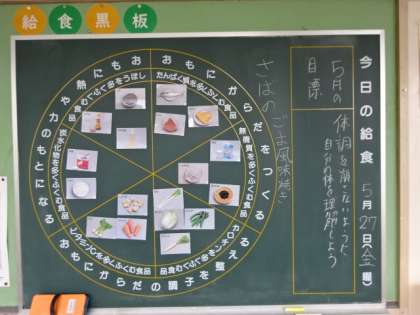 給食黒板
今日の給食 5月27日(金曜)
5月の目標
体調を崩さないように
自分の体を理解しよう
さばのごま風味焼き
おもにからだをつくる
おもにからだの調子を整える
たんぱく質を多くふくむ食品
無機質を多くふくむ食品
カロテンを多くふくむ食品
ビタミンCを多くふくむ食品
炭水化物を多くふくむ食品